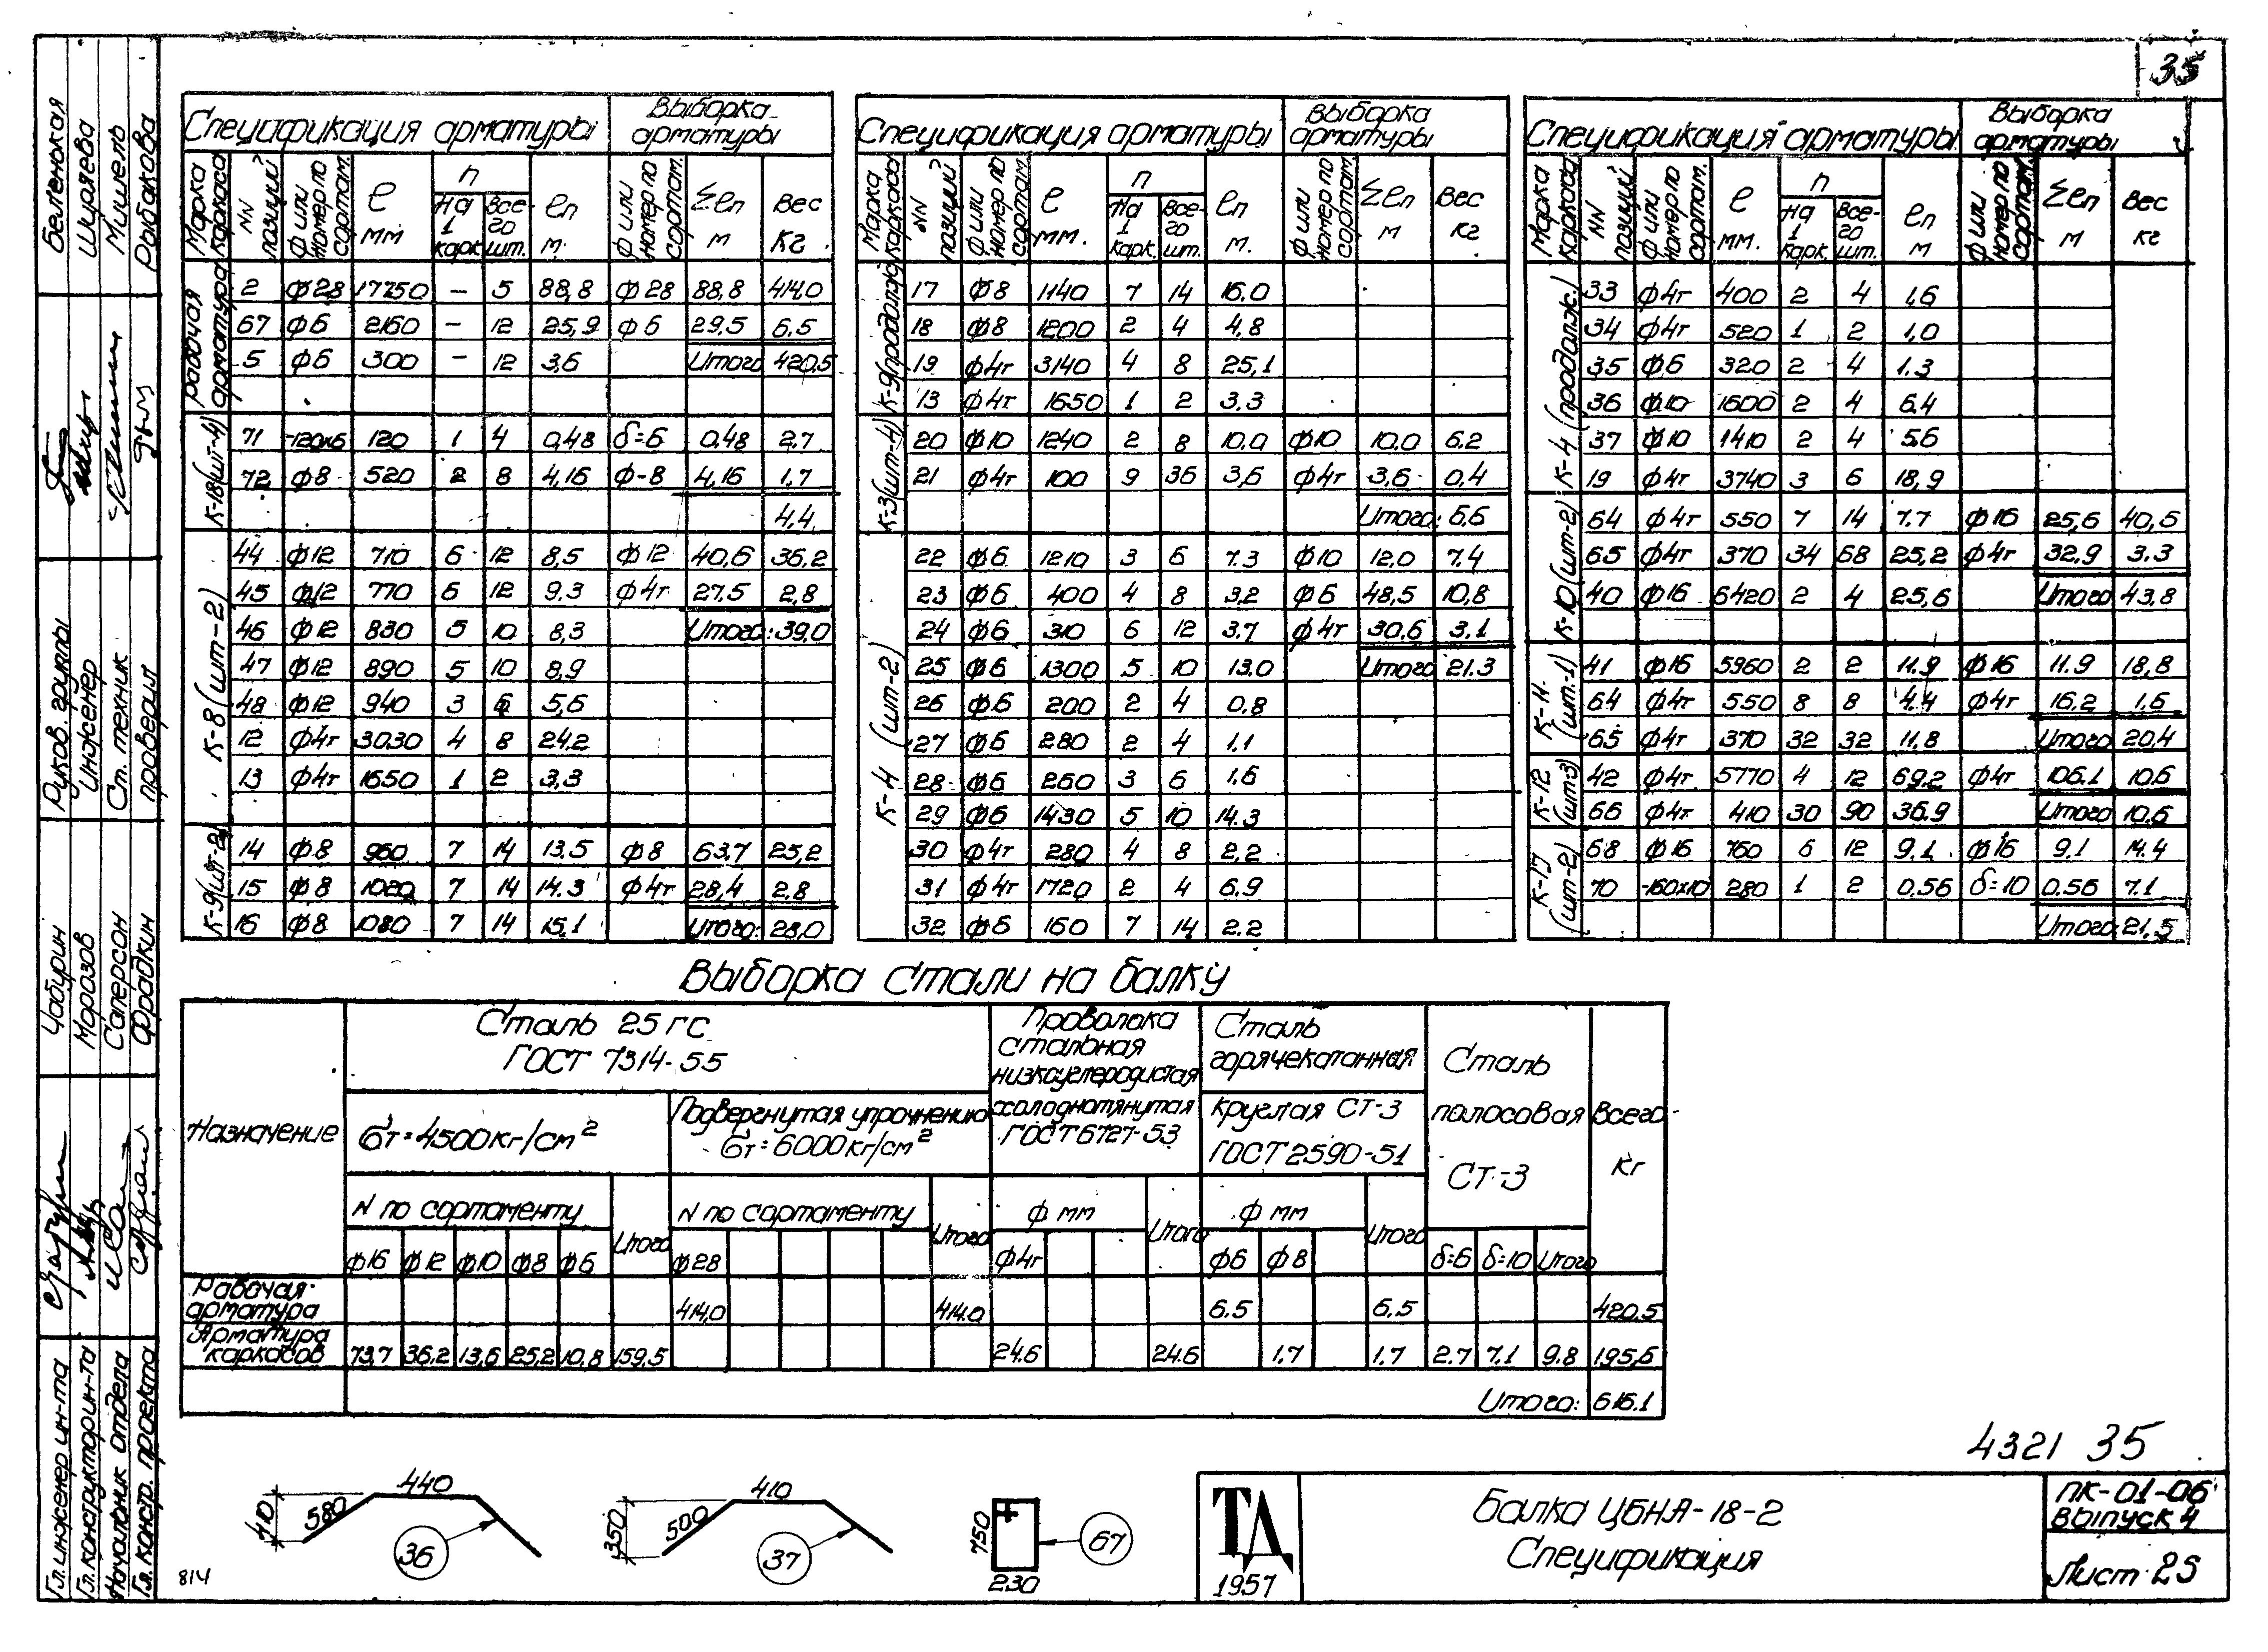 35
Спецификация арматуры | Выборка арматуры
Марка каркаса | NN позиций | ф или номер по сортам. | ℓ мм | n На 1 карк. | n Все-го шт. | ℓn м. | ф или номер по сортам | Σℓn м | Вес кг
Рабочая арматура
2 | ф28 | 17750 | — | 5 | 88,8 | ф28 | 88,8 | 414,0
67 | ф6 | 2160 | — | 12 | 25,9 | ф6 | 29.5 | 6.5
5 | ф6 | 300 | — | 12 | 3,6 | Итого | 420,5
К-18 (шт-4)
71 | -120х6 | 120 | 1 | 4 | 0,48 | δ=6 | 0,48 | 2.7
72 | ф8 | 520 | 2 | 8 | 4,16 | ф-8 | 4,16 | 1.7
4,4
К-8 (шт-2)
44 | ф12 | 710 | 6 | 12 | 8,5 | ф12 | 40,6 | 36.2
45 | ф12 | 770 | 6 | 12 | 9.3 | ф4т | 27.5 | 2,8
46 | ф12 | 830 | 5 | 10 | 8,3 | Итого: | 39,0
47 | ф12 | 890 | 5 | 10 | 8,9
48 | ф12 | 940 | 3 | 6 | 5,6
12 | ф4т | 3030 | 4 | 8 | 24.2
13 | ф4т | 1650 | 1 | 2 | 3,3
К-9 (шт-2)
14 | ф8 | 960 | 7 | 14 | 13,5 | ф8 | 63.7 | 25,2
15 | ф8 | 1020 | 7 | 14 | 14.3 | ф4т | 28,4 | 2.8
16 | ф8 | 1080 | 7 | 14 | 15.1 | Итого: | 28,0
Спецификация арматуры | Выборка арматуры
Марка каркаса | NN позиций | ф или номер по сортам. | ℓ мм. | n На 1 карк. | n Все-го шт. | ℓn м. | ф или номер по сортам. | Σℓn м | Вес кг
К-9 (продолж.)
17 | ф8 | 1140 | 7 | 14 | 16.0
18 | ф8 | 1200 | 2 | 4 | 4,8
19 | ф4т | 3140 | 4 | 8 | 25,1
13 | ф4т | 1650 | 1 | 2 | 3.3
К-3 (шт-4)
20 | ф10 | 1240 | 2 | 8 | 10.0 | ф10 | 10.0 | 6.2
21 | ф4т | 100 | 9 | 36 | 3,6 | ф4т | 3,6 | 0,4
Итого: | 6,6
К-4 (шт-2)
22 | ф6 | 1210 | 3 | 6 | 7.3 | ф10 | 12.0 | 7.4
23 | ф6 | 400 | 4 | 8 | 3,2 | ф6 | 48,5 | 10,8
24 | ф6 | 310 | 6 | 12 | 3.7 | ф4т | 30.6 | 3.1
25 | ф6 | 1300 | 5 | 10 | 13.0 | Итого | 21.3
26 | ф6 | 200 | 2 | 4 | 0,8
27 | ф6 | 280 | 2 | 4 | 1.1
28 | ф6 | 260 | 3 | 6 | 1,6
29 | ф6 | 1430 | 5 | 10 | 14.3
30 | ф4т | 280 | 4 | 8 | 2,2
31 | ф4т | 1720 | 2 | 4 | 6.9
32 | ф6 | 160 | 7 | 14 | 2.2
Спецификация арматуры | Выборка арматуры
Марка каркаса | NN позиций | ф или номер по сортам. | ℓ мм. | n На 1 карк. | n Все-го шт. | ℓn м | ф или номер по сортам. | Σℓn м | Вес кг
К-4 (продолж.)
33 | ф4т | 400 | 2 | 4 | 1,6
34 | ф4т | 520 | 1 | 2 | 1,0
35 | ф6 | 320 | 2 | 4 | 1.3
36 | ф10 | 1600 | 2 | 4 | 6.4
37 | ф10 | 1410 | 2 | 4 | 5.6
19 | ф4т | 3740 | 3 | 6 | 18,9
К-10 (шт-2)
64 | ф4т | 550 | 7 | 14 | 7.7 | ф16 | 25,6 | 40,5
65 | ф4т | 370 | 34 | 68 | 25,2 | ф4т | 32.9 | 3.3
40 | ф16 | 6420 | 2 | 4 | 25,6 | Итого | 43,8
К-11 (шт.-1)
41 | ф16 | 5960 | 2 | 2 | 11.9 | ф16 | 11.9 | 18,8
64 | ф4т | 550 | 8 | 8 | 4.4 | ф4т | 16.2 | 1.6
65 | ф4т | 370 | 32 | 32 | 11,8 | Итого | 20,4
К-12 (шт-3)
42 | ф4т | 5770 | 4 | 12 | 69.2 | ф4т | 106.1 | 10,6
66 | ф4т | 410 | 30 | 90 | 36.9 | Итого | 10,6
К-17 (шт-2)
68 | ф16 | 760 | 6 | 12 | 9.1 | ф16 | 9.1 | 14.4
70 | -160х10 | 280 | 1 | 2 | 0.56 | δ=10 | 0.56 | 7.1
Итого: | 21,5
Выборка стали на балку
Назначение | Сталь 25 ГС ГОСТ 7314-55 | Проволока стальная низкоуглеродистая холоднотянутая ГОСТ 6727-53 | Сталь горячекатанная круглая СТ-3 ГОСТ 2590-51 | Сталь полосовая СТ-3 | Всего кг
бт=4500кг/см² | Подвергнутая упрочнению бт=6000кг/см²
N по сортаменту | Итого | N по сортаменту | Итого | ф мм | Итого | ф мм | Итого
ф16 | ф12 | ф10 | ф8 | ф6 | ф28 | ф4т | ф6 | ф8 | δ=6 | δ=10 | Итого
Рабочая арматура | 414,0 | 414.0 | 6.5 | 6,5 | 420,5
Арматура каркасов | 73,7 | 36.2 | 13,6 | 25,2 | 10,8 | 159,5 | 24.6 | 24.6 | 1.7 | 1.7 | 2.7 | 7.1 | 9.8 | 195,6
Итого: | 616.1
4321 35
410 580 440 36
350 500 410 37
750 230 67
814
ТД
1957
Балка ЦБНА-18-2
Спецификация
ПК-01-06
Выпуск 4
Лист 25
Беленькая
Ширяева
Мишель
Рыбакова
Руков. группы
Инженер
Ст. техник
проверил
Чабурин
Морозов
Саперсон
Фрадкин
Гл. инженер ин-та
Гл. конструктор ин-та
Начальник отдела
Гл. констр. проекта